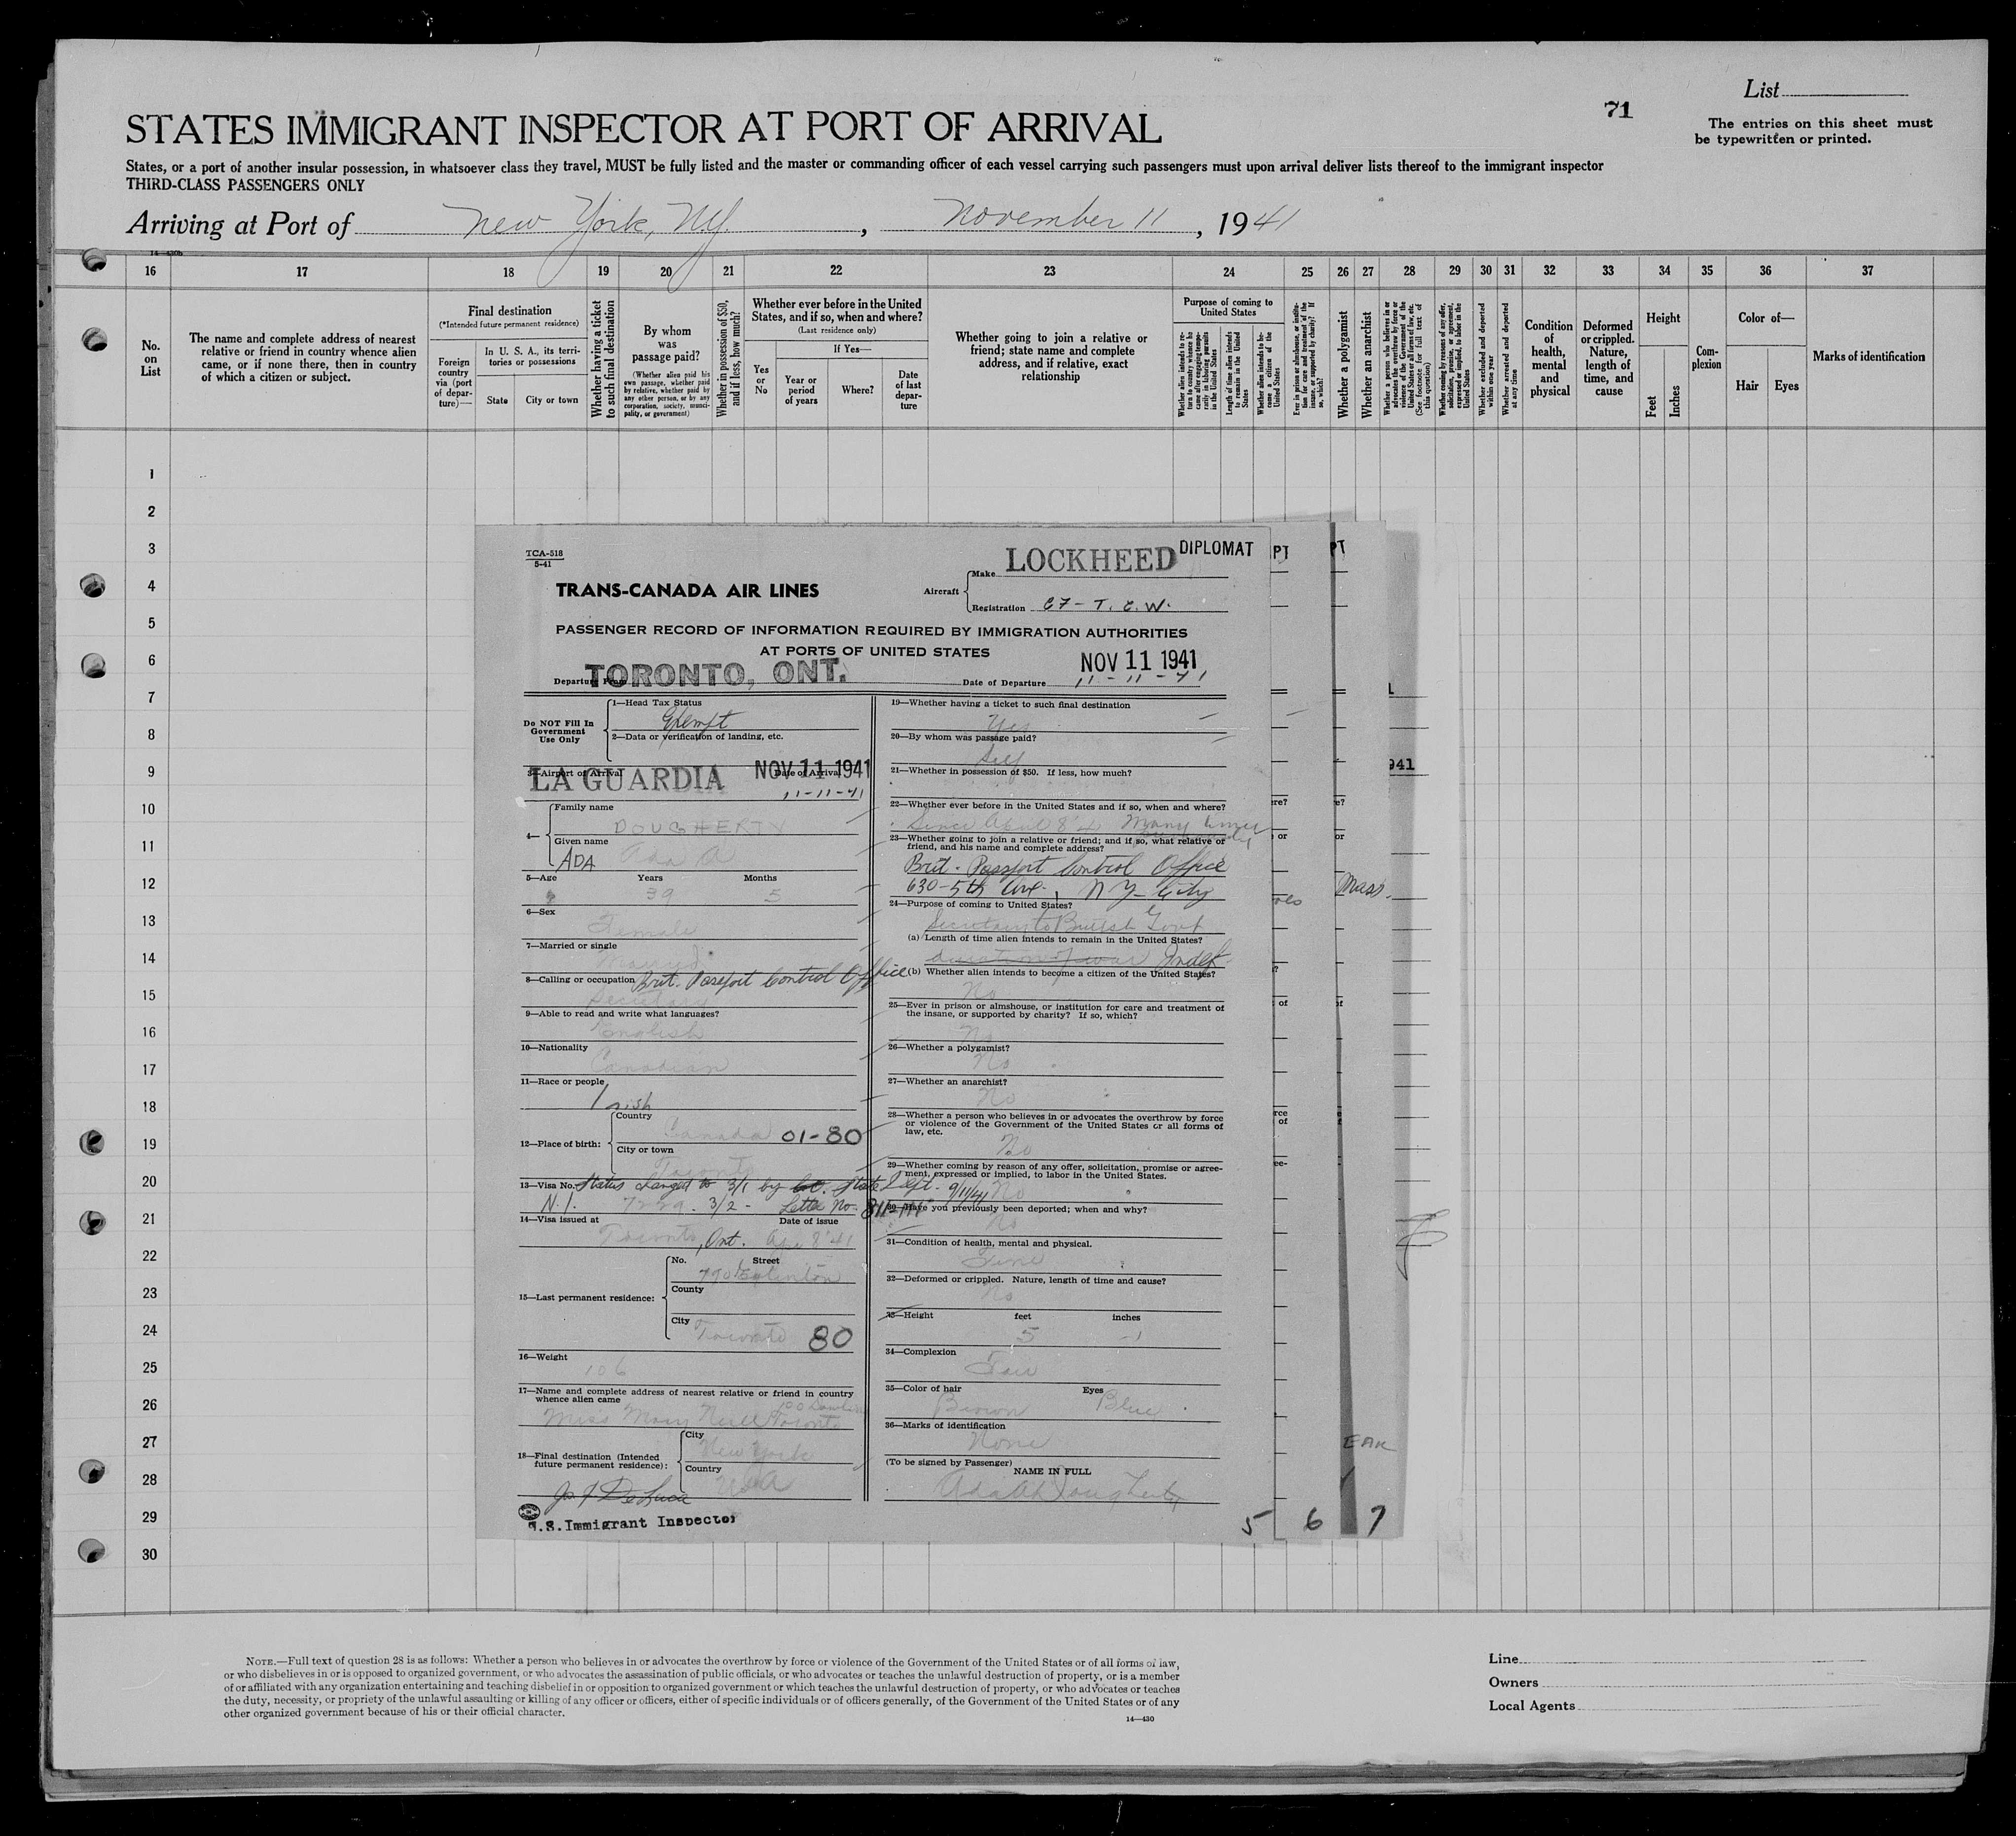 List
71
The entries on this sheet must
be typewritten or printed.
STATES IMMIGRANT INSPECTOR AT PORT OF ARRIVAL
States, or a port of another insular possession, in whatsoever class they travel, MUST be fully listed and the master or commanding officer of each vessel carrying such passengers must upon arrival deliver lists thereof to the immigrant inspector
THIRD-CLASS PASSENGERS ONLY
Arriving at Port of New York, N.Y. , November 11 , 1941
14—430b
16 17 18 19 20 21 22 23 24 25 26 27 28 29 30 31 32 33 34 35 36 37
No.
on
List
The name and complete address of nearest
relative or friend in country whence alien
came, or if none there, then in country
of which a citizen or subject.
Final destination
(*Intended future permanent residence)
Foreign
country
via (port
of depar-
ture)—
In U. S. A., its terri-
tories or possessions
State City or town
Whether having a ticket
to such final destination
By whom
was
passage paid?
(Whether alien paid his
own passage, whether paid
by relative, whether paid by
any other person, or by any
corporation, society, munici-
pality, or government)
Whether in possession of $50,
and if less, how much?
Whether ever before in the United
States, and if so, when and where?
(Last residence only)
Yes
or
No
If Yes—
Year or
period
of years
Where?
Date
of last
depar-
ture
Whether going to join a relative or
friend; state name and complete
address, and if relative, exact
relationship
Purpose of coming to
United States
Whether alien intends to re-
turn to country whence he
came after engaging tempo-
rarily in laboring pursuits
in the United States
Length of time alien intends
to remain in the United
States
Whether alien intends to be-
come a citizen of the
United States
Ever in prison or almshouse, or institu-
tion for care and treatment of the
insane, or supported by charity? If
so, which?
Whether a polygamist
Whether an anarchist
Whether a person who believes in or
advocates the overthrow by force or
violence of the Government of the
United States or all forms of law, etc.
(See footnote for full text of
this question)
Whether coming by reasons of any offer,
solicitation, promise, or agreement,
expressed or implied, to labor in the
United States
Whether excluded and deported
within one year
Whether arrested and deported
at any time
Condition
of
health,
mental
and
physical
Deformed
or crippled.
Nature,
length of
time, and
cause
Height
Feet
Inches
Com-
plexion
Color of—
Hair Eyes
Marks of identification
1
2
3
4
5
6
7
8
9
10
11
12
13
14
15
16
17
18
19
20
21
22
23
24
25
26
27
28
29
30
TCA-518
5-41
TRANS-CANADA AIR LINES
Aircraft
Make LOCKHEED
DIPLOMAT
Registration CF-T.C.W.
PASSENGER RECORD OF INFORMATION REQUIRED BY IMMIGRATION AUTHORITIES
AT PORTS OF UNITED STATES
Departure From TORONTO, ONT.
NOV 11 1941
Date of Departure 11-11-41
Do NOT Fill In
Government
Use Only
1—Head Tax Status
Exempt
2—Data or verification of landing, etc.
3—Airport of Arrival LA GUARDIA
Date of Arrival NOV 11 1941
11-11-41
4—
Family name
DOUGHERTY
Given name
ADA Ada A
5—Age Years Months
39 5
6—Sex
Female
7—Married or single
Married
8—Calling or occupation Brit. Passport Control Office
Secretary
9—Able to read and write what languages?
English
10—Nationality
Canadian
11—Race or people
Irish
12—Place of birth:
Country
Canada 01-80
City or town
Toronto
13—Visa No. Status changed to 3/1 by State Dept. 9/11/41
N.I. 7229. 3/2 - Letter No. 811-111
14—Visa issued at Date of issue
Toronto, Ont. Apr 8'41
15—Last permanent residence:
No. Street
790 Eglinton
County
City
Toronto 80
16—Weight
106
17—Name and complete address of nearest relative or friend in country
whence alien came
Miss Mary Neill Toronto
18—Final destination (Intended
future permanent residence):
City
New York
Country
USA
Jo. F. DeLuca
U.S. Immigrant Inspector
19—Whether having a ticket to such final destination
Yes
20—By whom was passage paid?
Self
21—Whether in possession of $50. If less, how much?
22—Whether ever before in the United States and if so, when and where?
Since April 8'41 Many times
23—Whether going to join a relative or friend; and if so, what relative or
friend, and his name and complete address?
Brit. Passport Control Office
630-5th Ave., N.Y. City
24—Purpose of coming to United States?
Secretary to British Govt
(a) Length of time alien intends to remain in the United States?
duration of war Indef.
(b) Whether alien intends to become a citizen of the United States?
No
25—Ever in prison or almshouse, or institution for care and treatment of
the insane, or supported by charity? If so, which?
No
26—Whether a polygamist?
No
27—Whether an anarchist?
No
28—Whether a person who believes in or advocates the overthrow by force
or violence of the Government of the United States or all forms of
law, etc.
No
29—Whether coming by reason of any offer, solicitation, promise or agree-
ment, expressed or implied, to labor in the United States.
No
30—Have you previously been deported; when and why?
No
31—Condition of health, mental and physical.
Fine
32—Deformed or crippled. Nature, length of time and cause?
No
33—Height feet inches
5 -1
34—Complexion
Fair
35—Color of hair Eyes
Brown Blue
36—Marks of identification
None
(To be signed by Passenger)
NAME IN FULL
Ada A Dougherty
5 6 7
PT
PT
941
re?
e?
or
or
Mass.
of
EAK
NOTE.—Full text of question 28 is as follows: Whether a person who believes in or advocates the overthrow by force or violence of the Government of the United States or of all forms of law,
or who disbelieves in or is opposed to organized government, or who advocates the assassination of public officials, or who advocates or teaches the unlawful destruction of property, or is a member
of or affiliated with any organization entertaining and teaching disbelief in or opposition to organized government or which teaches the unlawful destruction of property, or who advocates or teaches
the duty, necessity, or propriety of the unlawful assaulting or killing of any officer or officers, either of specific individuals or of officers generally, of the Government of the United States or of any
other organized government because of his or their official character.
14—430
Line
Owners
Local Agents